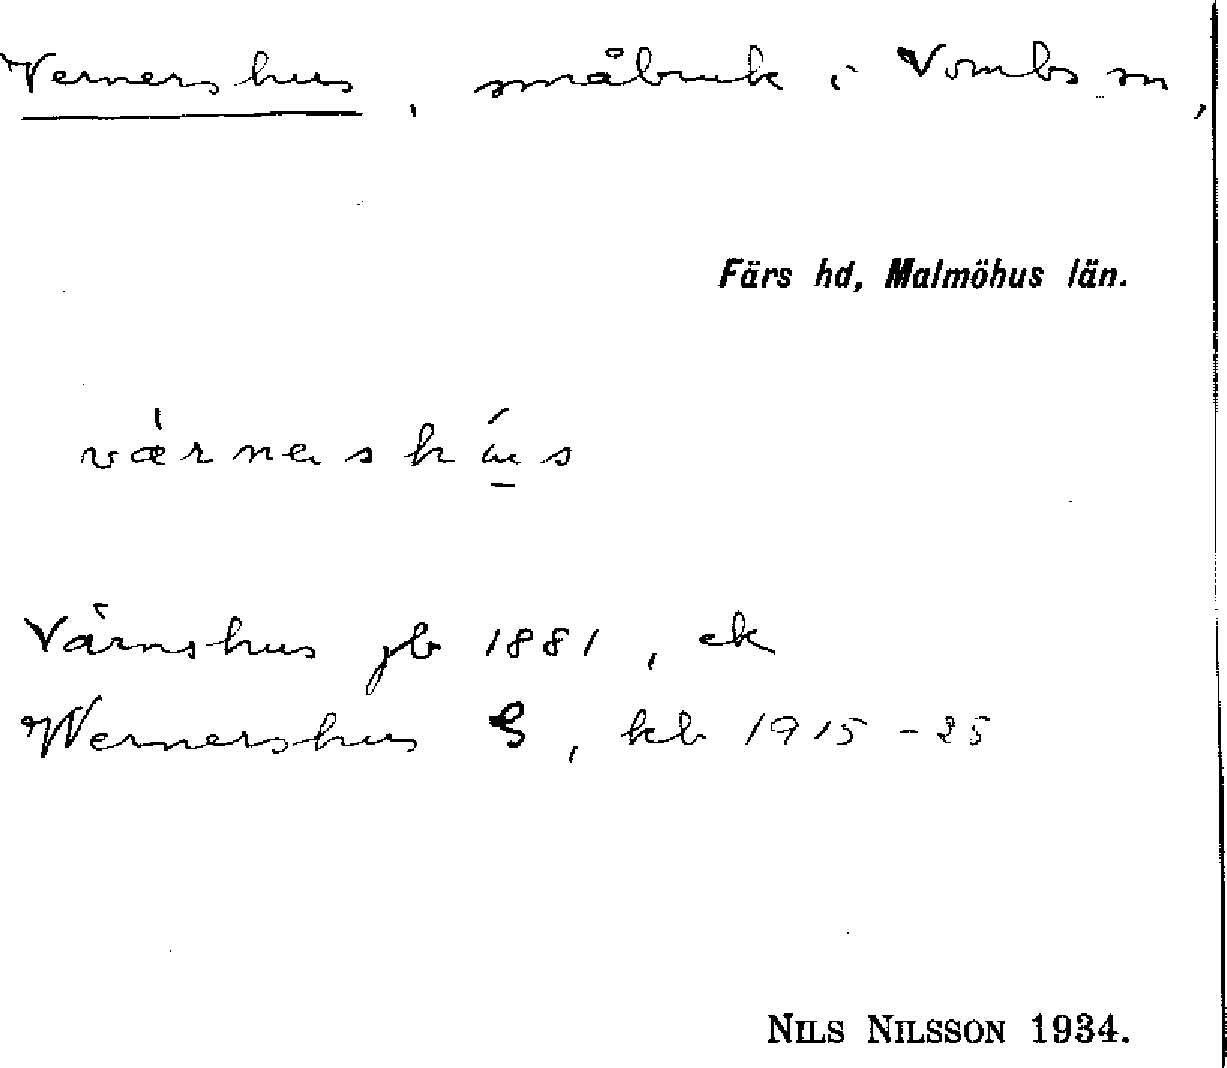 Vernershus, småbruk i Vombs sn,
Färs hd, Malmöhus län.
Värnshus jb 1881, ek
Wernershus S, kb 1915-25
NILS NILSSON 1934.